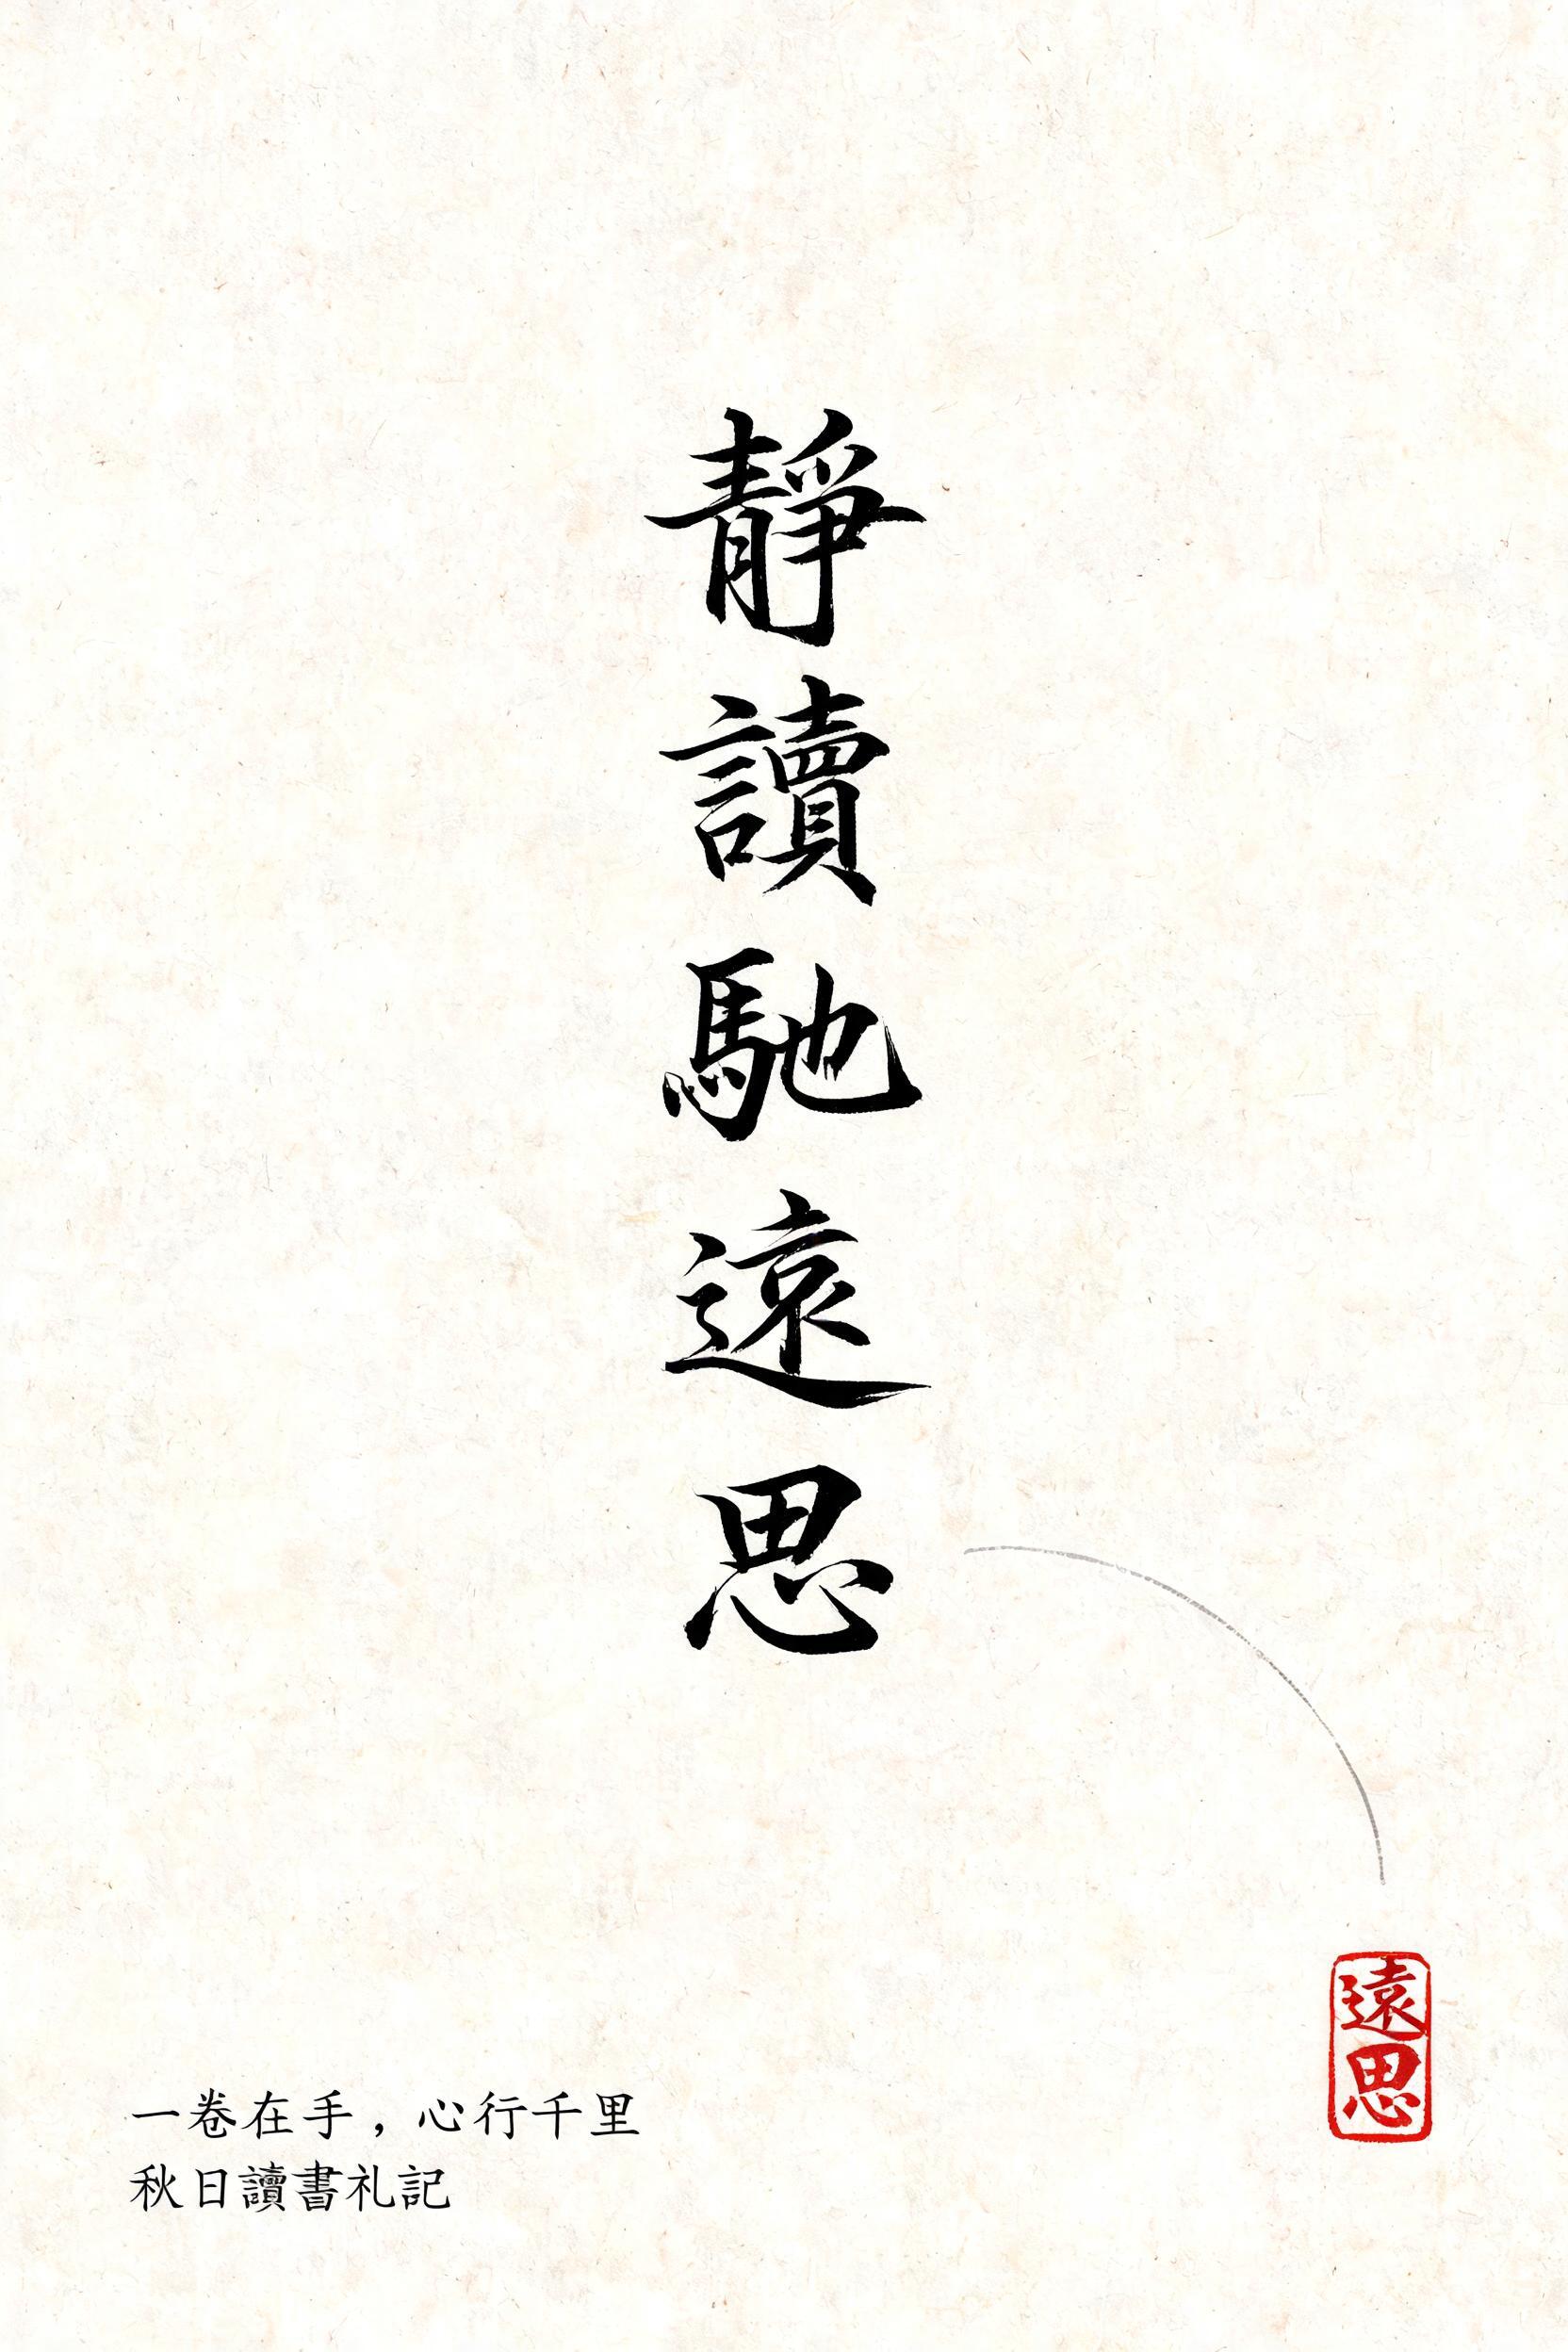 靜讀馳遠思
遠思
一卷在手，心行千里
秋日讀書礼記